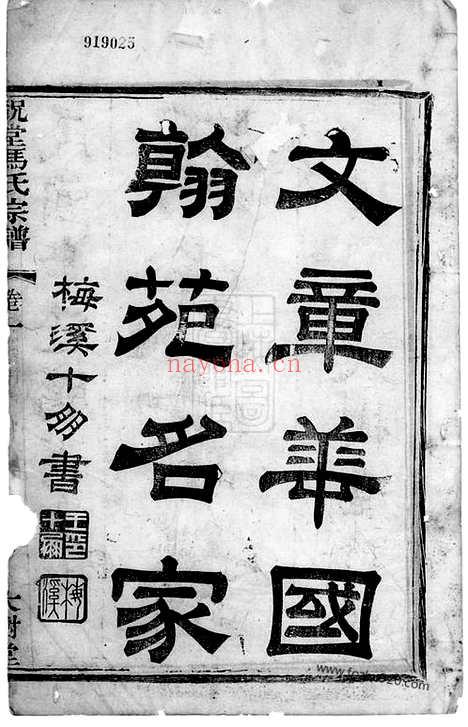 919025
文章華國
翰苑名家
梅溪十朋書
王印十朋
梅溪
祝堂馬氏宗譜
卷一
大樹堂
nayona.cn